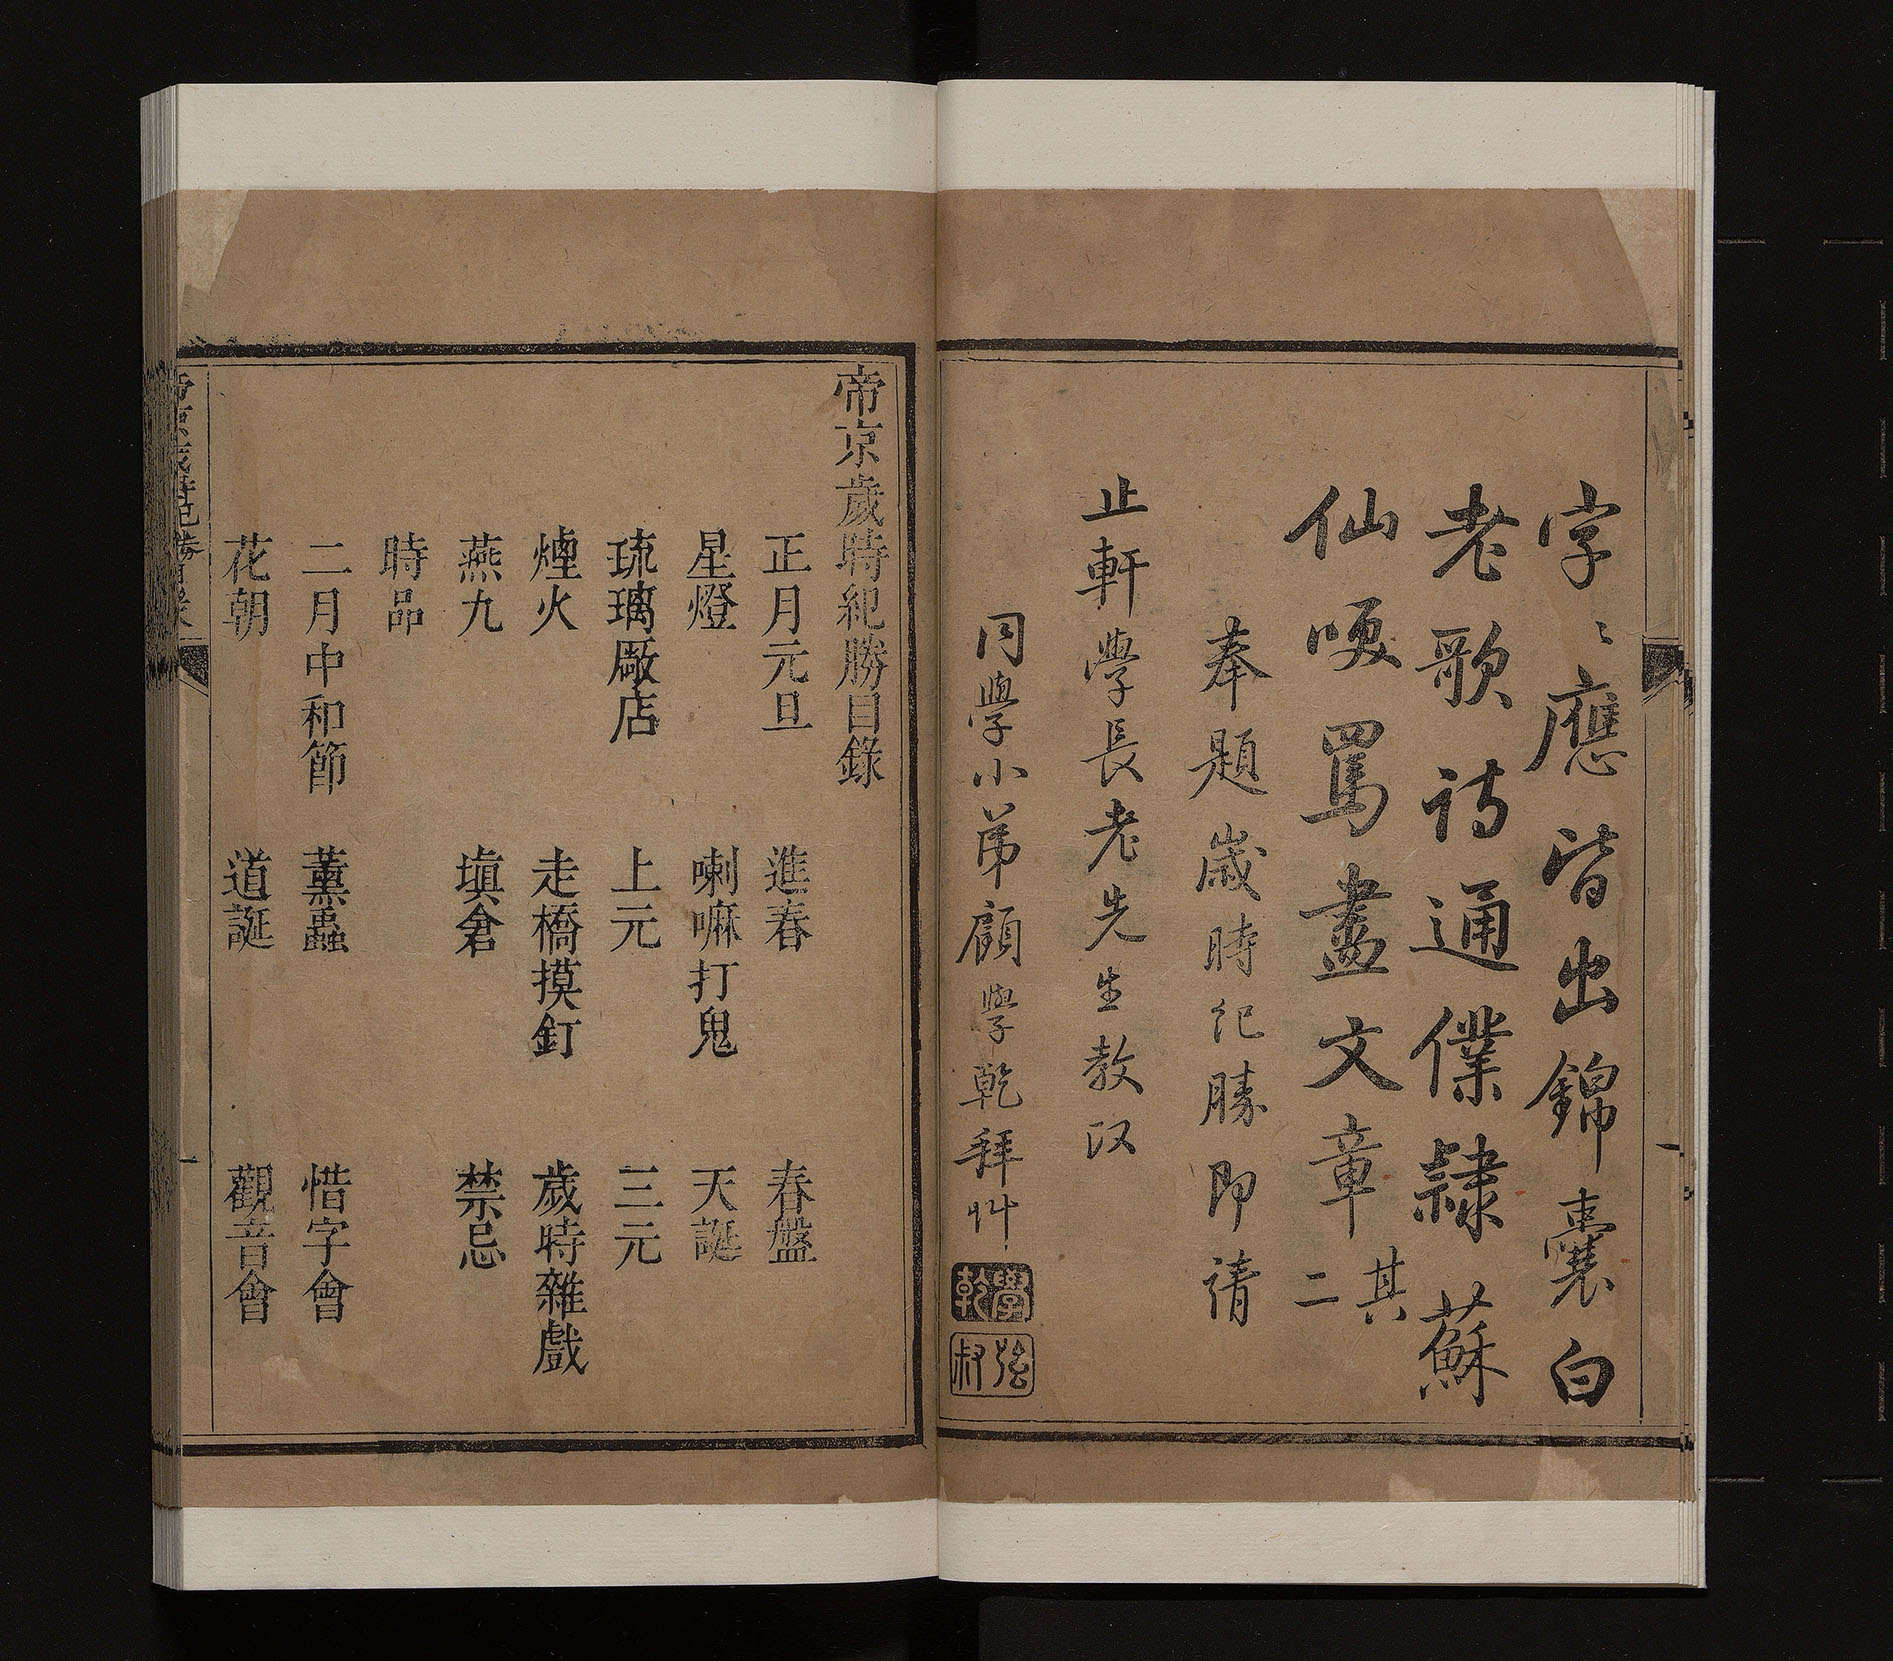 字〻應皆出錦囊白
老歌詩通僕隷蘇
仙哽罵盡文章其二
奉題歲時紀勝即請
止軒學長老先生教政
同學小弟顧學乾拜艸
學乾
弦叔
帝京歲時紀勝目錄
正月元旦 進春 春盤
星燈 喇嘛打鬼 天誕
琉璃厰店 上元 三元
煙火 走橋摸釘 歲時雜戲
燕九 塡倉 禁忌
時品
二月中和節 薰蟲 惜字會
花朝 道誕 觀音會